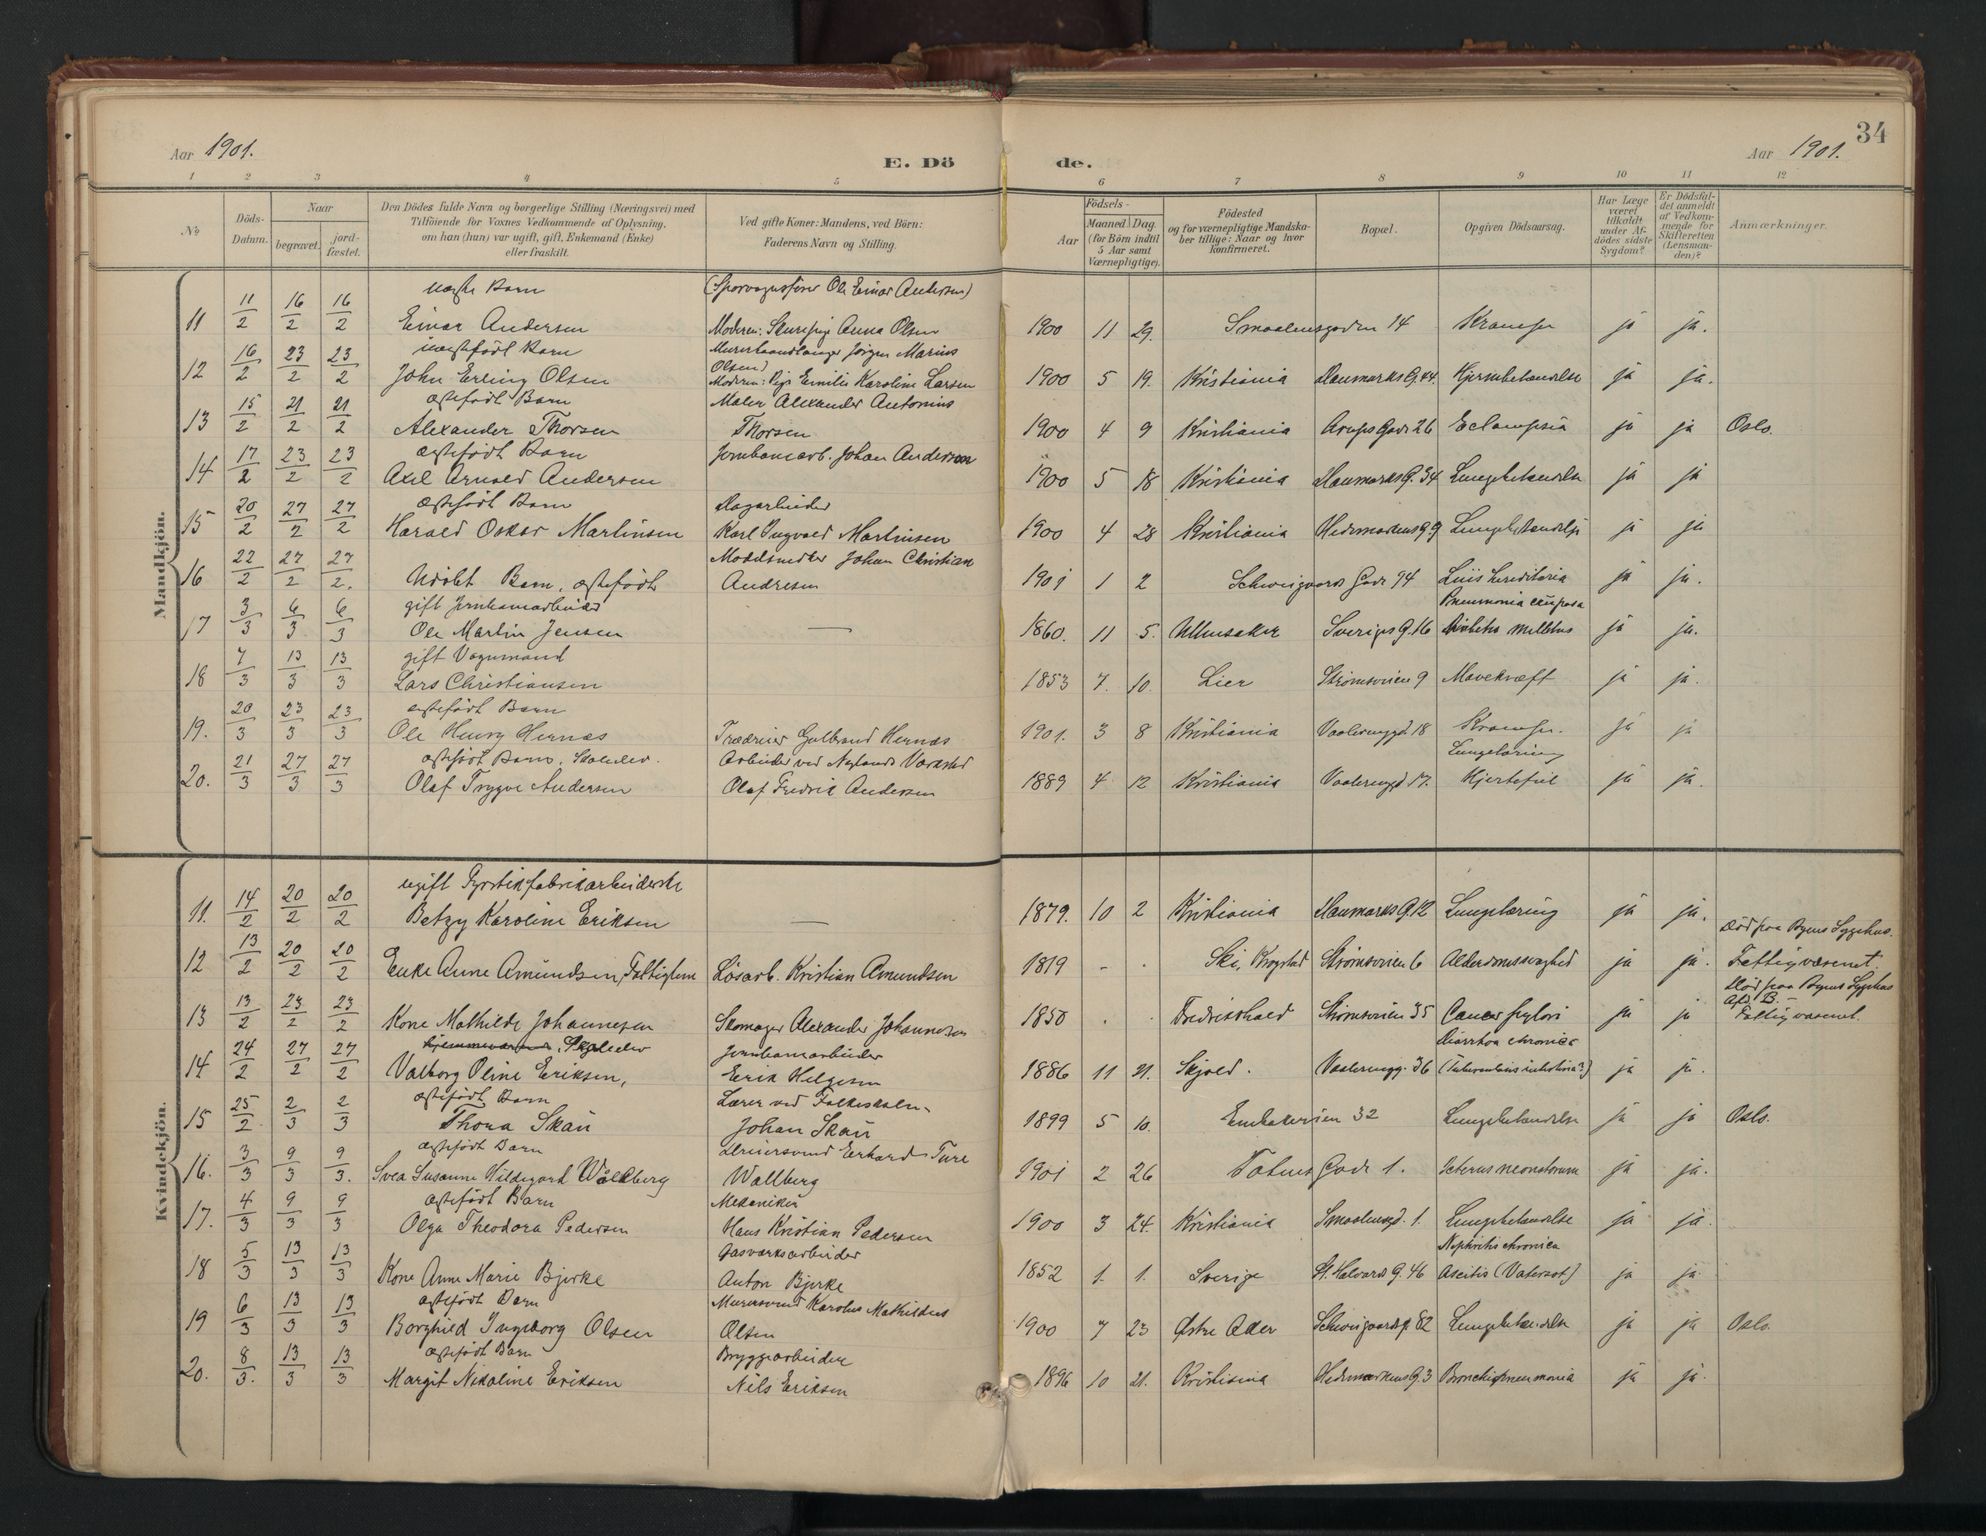 Aar 1901.
E. Dö
de.
Aar 1901.
34
1 2 3 4 5 6 7 8 9 10 11 12
No
Döds-Datum.
Naar
begravet.
jord-fæstet.
Den Dödes fulde Navn og borgerlige Stilling (Næringsvei) med
Tilföiende for Voxnes Vedkommende af Oplysning,
om han (hun) var ugift, gift, Enkemand (Enke)
eller fraskilt.
Ved gifte Koner: Mandens, ved Börn:
Faderens Navn og Stilling.
Födsels-
Aar
Maaned Dag.
(for Börn indtil
5 Aar samt
Værnepligtige).
Födested
og for værnepligtige Mandska-
ber tillige: Naar og hvor
konfirmeret.
Bopæl.
Opgiven Dödsaarsag.
Har Læge
været
tilkaldt
under Af-
dödes sidste
Sygdom?
Er Dödsfal-
det anmeldt
af Vedkom-
mende for
Skifteretten
(Lensman-
den)?
Anmærkninger.
Mandkjön.
uægte Barn (Sporvognsfører Ole Einar Andersen)
11 11/2 16/2 16/2 Einar Andersen Moderen: Anna Olsen 1900 11 29. Smaalensgaden 14 Krampe ja ja.
uægtefødt Barn Murerhaandlanger Jörgen Marius
Olsen)
12 16/2 23/2 23/2 John Erling Olsen Moderen: Pige Emilie Karoline Larsen 1900 5 19. Kristiania Danmarks G. 44. Hjernbetændelse ja ja.
ægtefødt Barn Maler Alexander Antonius
13 15/2 21/2 21/2 Alexander Thorsen Thorsen 1900 4 9 Kristiania Arups Gade 26 Eclampsia ja ja Oslo.
ægtefødt Barn Jernbanearb. Johan Andersson
14 17/2 23/2 23/2 Axel Arnold Andersen 1900 5 18 Kristiania Danmarks G. 34 Lungebetændelse ja ja
ægtefødt Barn Dagarbeider
15 20/2 27/2 27/2 Harald Oskar Martinsen Karl Ingvald Martinsen 1900 4 28 Kristiania Hedemarkens G 9 Lungebetændelse ja ja
Modelsnedker Johan Christian
16 22/2 27/2 27/2. Udöbt Barn, ægtefødt Andresen 1901 1 2 Schweigaards Gade 94 Luis hereditaria ja ja.
gift Jernbanearbeider Pneumonia cruposa
17 3/3 6/3 6/3 Ole Martin Jensen — 1860. 11 5. Ullensaker Sveriges G. 16 Diabetes mellitus ja ja.
gift Vognmand
18 7/3 13/3 13/3 Lars Christiansen 1853 7. 10. Lier Strömsveien 9 Mavekræft ja ja.
ægtefødt Barn
19. 20/3 23/3 23/3 Ole Henry Hernæs Trædreier Gulbrand Hernæs 1901. 3 8 Kristiania Vaalerenggd 18 Krampe. ja ja
ægtefødt Barn, Skoleelev. Arbeider ved Nylands Værksted Lungetæring
20. 21/3 27/3 27/3 Olaf Trygve Andersen Olaf Fredrik Andersen 1889 4 12 Kristiania Vaalerenggd 17. Hjertefeil ja ja.
Kvindekjön.
ugift Fyrstikfabrikarbeiderske
11. 14/2 20/2 20/2 Betzy Karoline Eriksen — 1879. 10 2 Kristiania Danmarks G. 12 Lungetæring ja ja.
Död paa Byens Sygehus.
12 13/2 20/2 20/2 Enke Anne Amundsen, Fattiglem Lösarb. Kristian Amundsen 1819 - - Ski, Krogstad Strömsveien 6 Alderdomssvaghed ja ja. Fattigvæsenet.
Död paa Byens Sygehus
Afd. B. –
13 13/2 23/2 23/2 Kone Mathilde Johannesen Skomager Alexander Johannesen 1850 . . Fredrikshald Strömsveien 35 Cancer pylori ja ja Fattigvæsenet.
Skoleelev Jernbanearbeider Diarrhoa chronica
14 24/2 27/2 27/2 Valborg Oline Eriksen, Erik Helgesen 1886 11 21. Skjold. Vaalerengg. 36 ja ja.
ægtefødt Barn Lærer ved Folkeskolen
15 25/2 2/3 2/3 Thora Skau Johan Skau 1899 5 10. Enebakveien 32 Lungebetændelse ja ja Oslo.
ægtefødt Barn Dreiersvend Erhard Ture
16. 3/3 9/3 9/3. Svea Susanne Hildegard Wallberg Wallberg 1901 2 26 Totens Gade 1. Icterus neonatorum ja ja.
ægtefødt Barn Mekaniker
17. 4/3 9/3 9/3 Olga Theodora Pedersen Hans Kristian Pedersen 1900 3 24. Kristiania Smaalensgd. 1. Lungebetændelse ja ja.
Gasværksarbeider Nephritis chronica
18 5/3 13/3 13/3 Kone Anne Marie Bjerke Anton Bjerke 1852 1. 1. Sverige St. Halvards G. 46 Ascites (Vatersot) ja ja.
ægtefødt Barn Murersvend Karolus Mathildus
19 6/3 13/3 13/3 Borghild Ingeborg Olsen Olsen 1900 7 23 Østre Aker Schweigaardsg. 82 Lungebetændelse ja ja Oslo.
ægtefødt Barn Bryggearbeider
20. 8/3. 13/3 13/3 Margit Nikoline Eriksen Nils Eriksen 1896 10 21. Kristiania Hedemarkens G. 3 Bronchopneumonia ja ja.